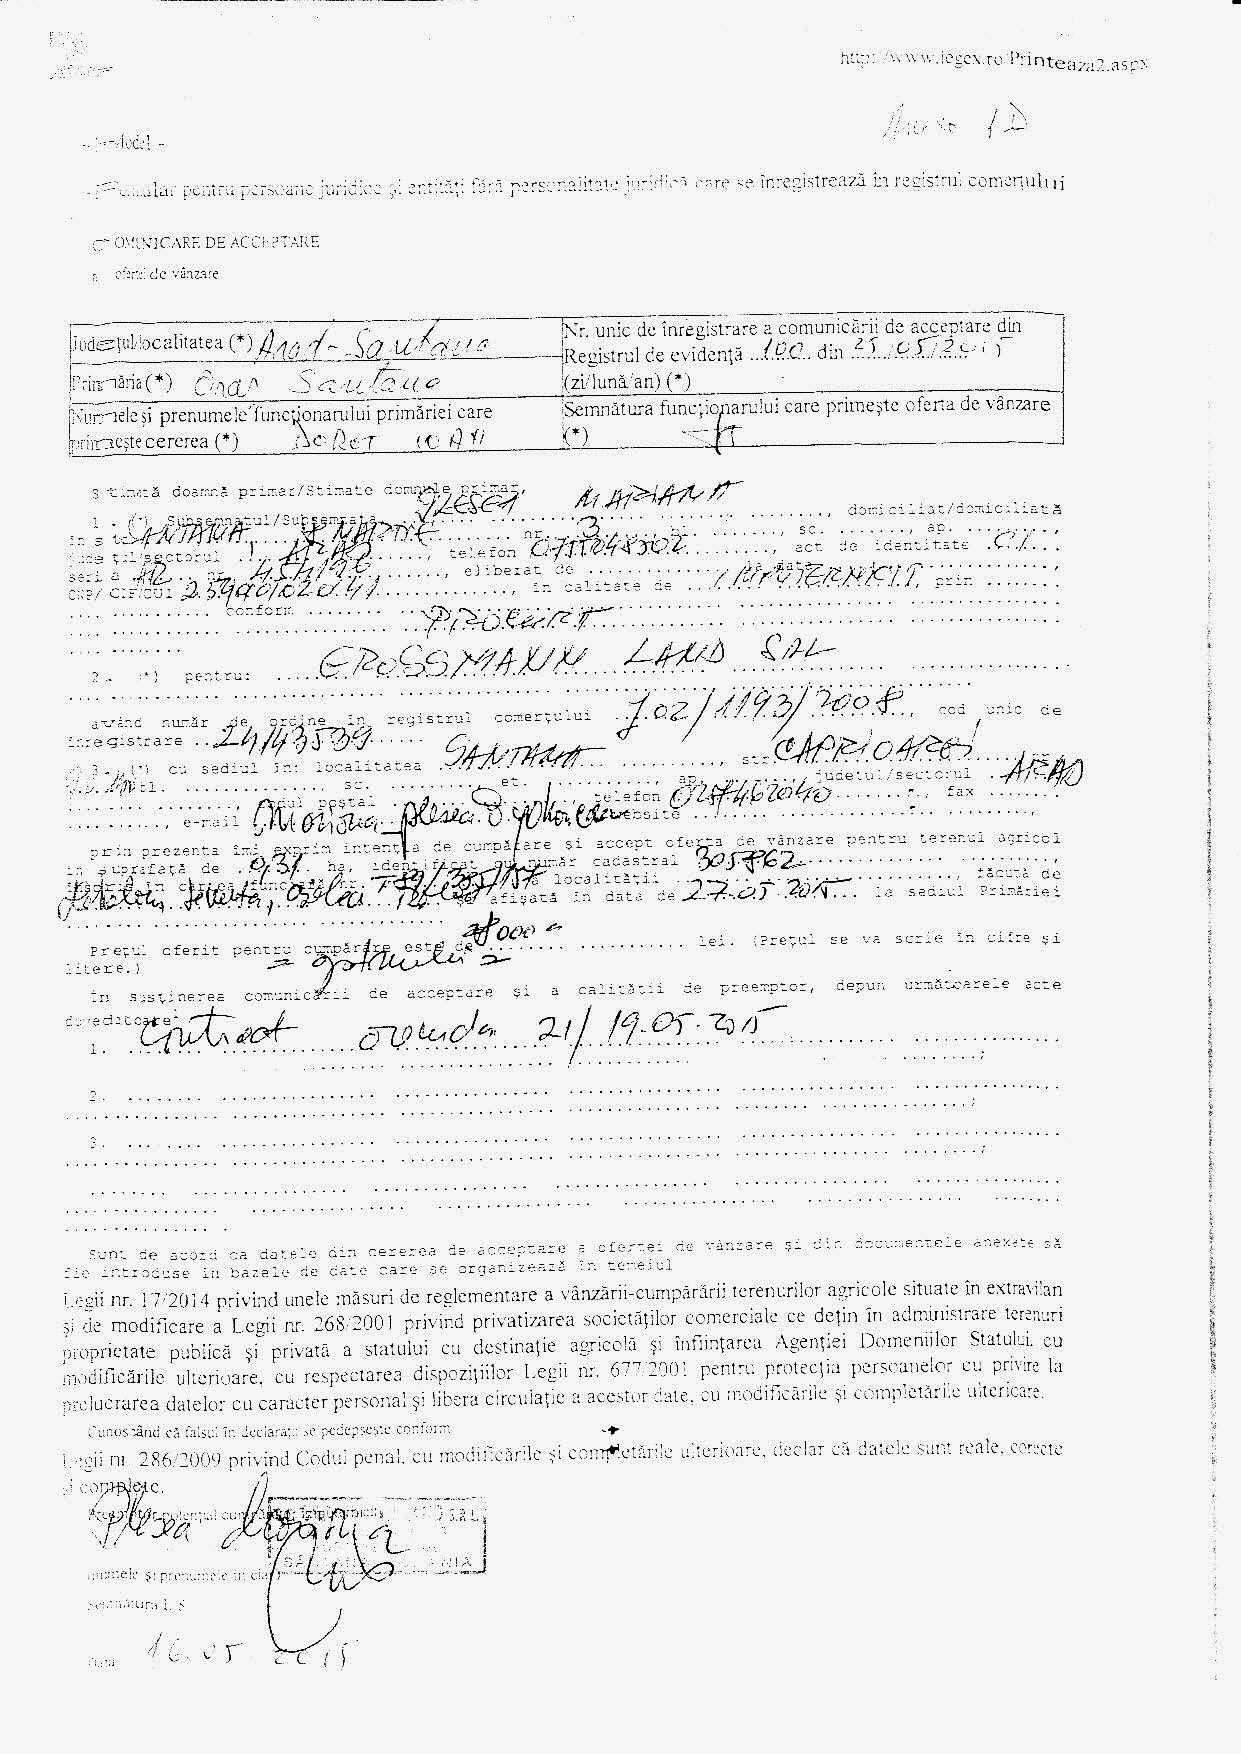 http://www.legex.ro/Printeaza2.aspx
Anexa 1D
- Model -
- Formular pentru persoane juridice și entități fără personalitate juridică care se înregistrează în registrul comerțului
COMUNICARE DE ACCEPTARE
a ofertei de vânzare
Județul/localitatea (*) Arad - Santana
Nr. unic de înregistrare a comunicării de acceptare din
Registrul de evidență ..100.. din 25./05/2015
Primăria (*) Oraș Santana
(zi/lună/an) (*)
Numele și prenumele funcționarului primăriei care
primește cererea (*)
Semnătura funcționarului care primește oferta de vânzare
(*)
Stimată doamnă primar/Stimate domnule primar,
1. (*) Subsemnatul/Subsemnata, PLESEA MARIANA ........, domiciliat/domiciliată
în SANTANA nr. 3 bl. ......, sc. ......, ap. ........,
județul/sectorul ARAD ......, telefon ........, act de identitate .CI...
seria ........, eliberat de ........
CNP/ CIF/CUI ........, în calitate de .. IMPUTERNICIT, prin ........
........ conform ........ PROCURA ........
2. (*) pentru: ..... GROSSMANN LAND SRL
având număr de ordine în registrul comerțului ..J.02/1193/2008.., cod unic de
înregistrare ..24143539......
3. (*) cu sediul în: localitatea .SANTANA............, str. CAPRIOAREI
bl. ........ sc. ........ et. ............, ap. ........ județul/sectorul .ARAD
............, codul poștal ........ telefon ........, fax .......
..........., e-mail ........ website ........
prin prezenta îmi exprim intenția de cumpărare și accept oferta de vânzare pentru terenul agricol
în suprafață de ..0,31. ha, identificat cu număr cadastral 305762........,
înscris în cartea funciară nr. ........ a localității ........, făcută de
........ și afișată în data de 27.05.2015... la sediul Primăriei
Prețul oferit pentru cumpărare este de ........ lei. (Prețul se va scrie în cifre și
litere.)
În susținerea comunicării de acceptare și a calității de preemptor, depun următoarele acte
doveditoare:
1. Contract arenda 21/19.05.2015
2. ........
3. ........
Sunt de acord ca datele din cererea de acceptare a ofertei de vânzare și din documentele anexate să
fie introduse în bazele de date care se organizează în temeiul
Legii nr. 17/2014 privind unele măsuri de reglementare a vânzării-cumpărării terenurilor agricole situate în extravilan
și de modificare a Legii nr. 268/2001 privind privatizarea societăților comerciale ce dețin în administrare terenuri
proprietate publică și privată a statului cu destinație agricolă și înființarea Agenției Domeniilor Statului, cu
modificările ulterioare, cu respectarea dispozițiilor Legii nr. 677/2001 pentru protecția persoanelor cu privire la
prelucrarea datelor cu caracter personal și libera circulație a acestor date, cu modificările și completările ulterioare.
Cunoscând că falsul în declarații se pedepsește conform
Legii nr. 286/2009 privind Codul penal, cu modificările și completările ulterioare, declar că datele sunt reale, corecte
și complete.
Plesea Mariana
numele și prenumele în clar
Semnătura L.S.
Data 16.05 2015